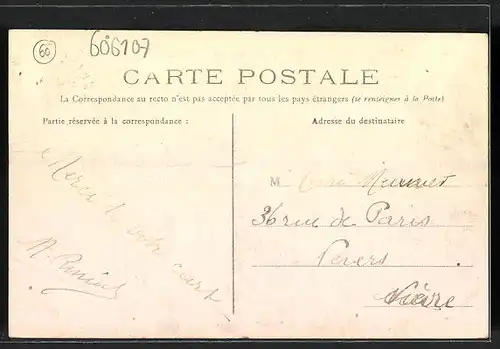 60
606107
CARTE POSTALE
La Correspondance au recto n'est pas acceptée par tous les pays étrangers (se renseigner à la Poste)
Partie réservée à la correspondance :
Adresse du destinataire
Merci de votre carte
M
36 rue de Paris
Nevers
Nièvre